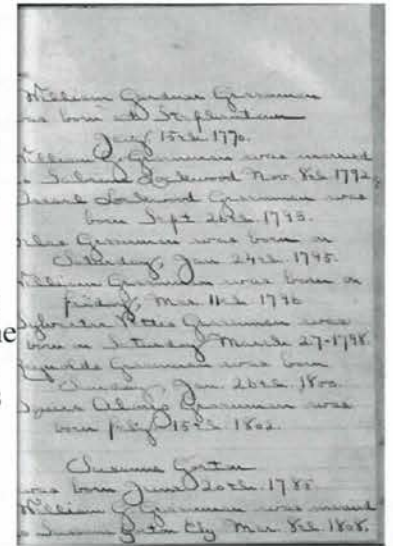 William Gardner Gersuman
was born at Stephentown
July 15th 1770.
William G. Gersuman was married
to Sabrina Lockwood Nov. 8th 1792.
Lockwood Gersuman was
born Sept 26th 1793.
Gersuman was born on
Saturday, Jan 24th 1795.
William Gersuman was born on
friday, Mar. 11th 1796
Sylvester Gersuman was
born on Saturday March 27-1798.
Gersuman was born
Sunday, Jan. 26th 1800.
Alonzo Gersuman was
born July 15th 1802.
Susanna Gorton
was born June 20th 1785
William G. Gersuman was married
to Susanna Gorton Mar. 8th 1808.